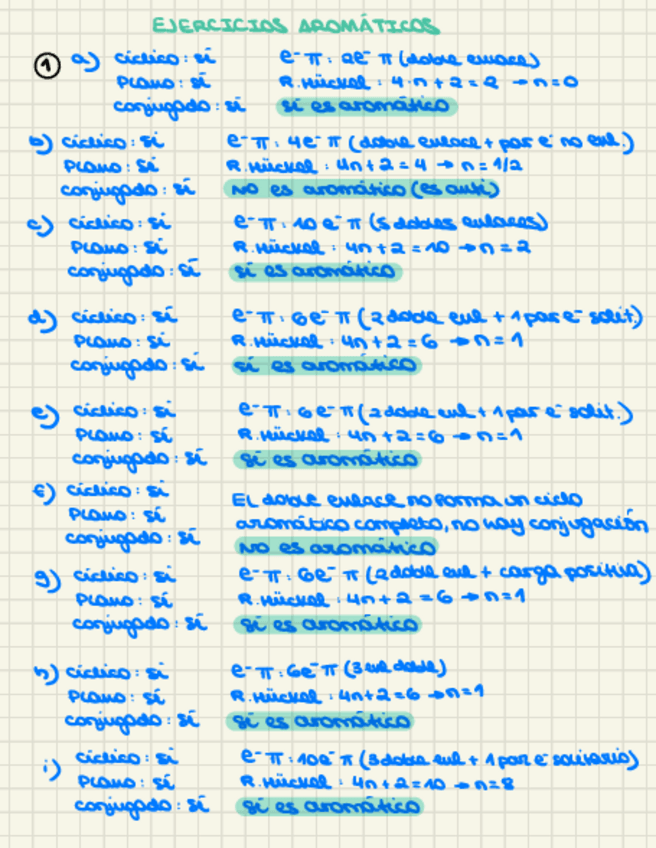 EJERCICIOS AROMÁTICOS
1 a) cíclico: sí e⁻ π: 2e⁻ π (doble enlace)
Plano: sí R. Hückel: 4·n + 2 = 2 → n = 0
conjugado: sí sí es aromático
b) cíclico: sí e⁻ π: 4e⁻ π (doble enlace + par e⁻ no enl.)
Plano: sí R. Hückel: 4n + 2 = 4 → n = 1/2
conjugado: sí NO es aromático (es anti)
c) cíclico: sí e⁻ π: 10 e⁻ π (5 dobles enlaces)
Plano: sí R. Hückel: 4n + 2 = 10 → n = 2
conjugado: sí sí es aromático
d) cíclico: sí e⁻ π: 6e⁻ π (2 doble enl + 1 par e⁻ solit.)
Plano: sí R. Hückel: 4n + 2 = 6 → n = 1
conjugado: sí sí es aromático
e) cíclico: sí e⁻ π: 6e⁻ π (2 doble enl + 1 par e⁻ solit.)
Plano: sí R. Hückel: 4n + 2 = 6 → n = 1
conjugado: sí sí es aromático
f) cíclico: sí El doble enlace no forma un ciclo
Plano: sí aromático completo, no hay conjugación
conjugado: sí NO es aromático
g) cíclico: sí e⁻ π: 6e⁻ π (2 doble enl + carga positiva)
Plano: sí R. Hückel: 4n + 2 = 6 → n = 1
conjugado: sí sí es aromático
h) cíclico: sí e⁻ π: 6e⁻ π (3 enl doble)
Plano: sí R. Hückel: 4n + 2 = 6 → n = 1
conjugado: sí sí es aromático
i) cíclico: sí e⁻ π: 10e⁻ π (3 doble enl + 1 par e⁻ solitario)
Plano: sí R. Hückel: 4n + 2 = 10 → n = 8
conjugado: sí sí es aromático